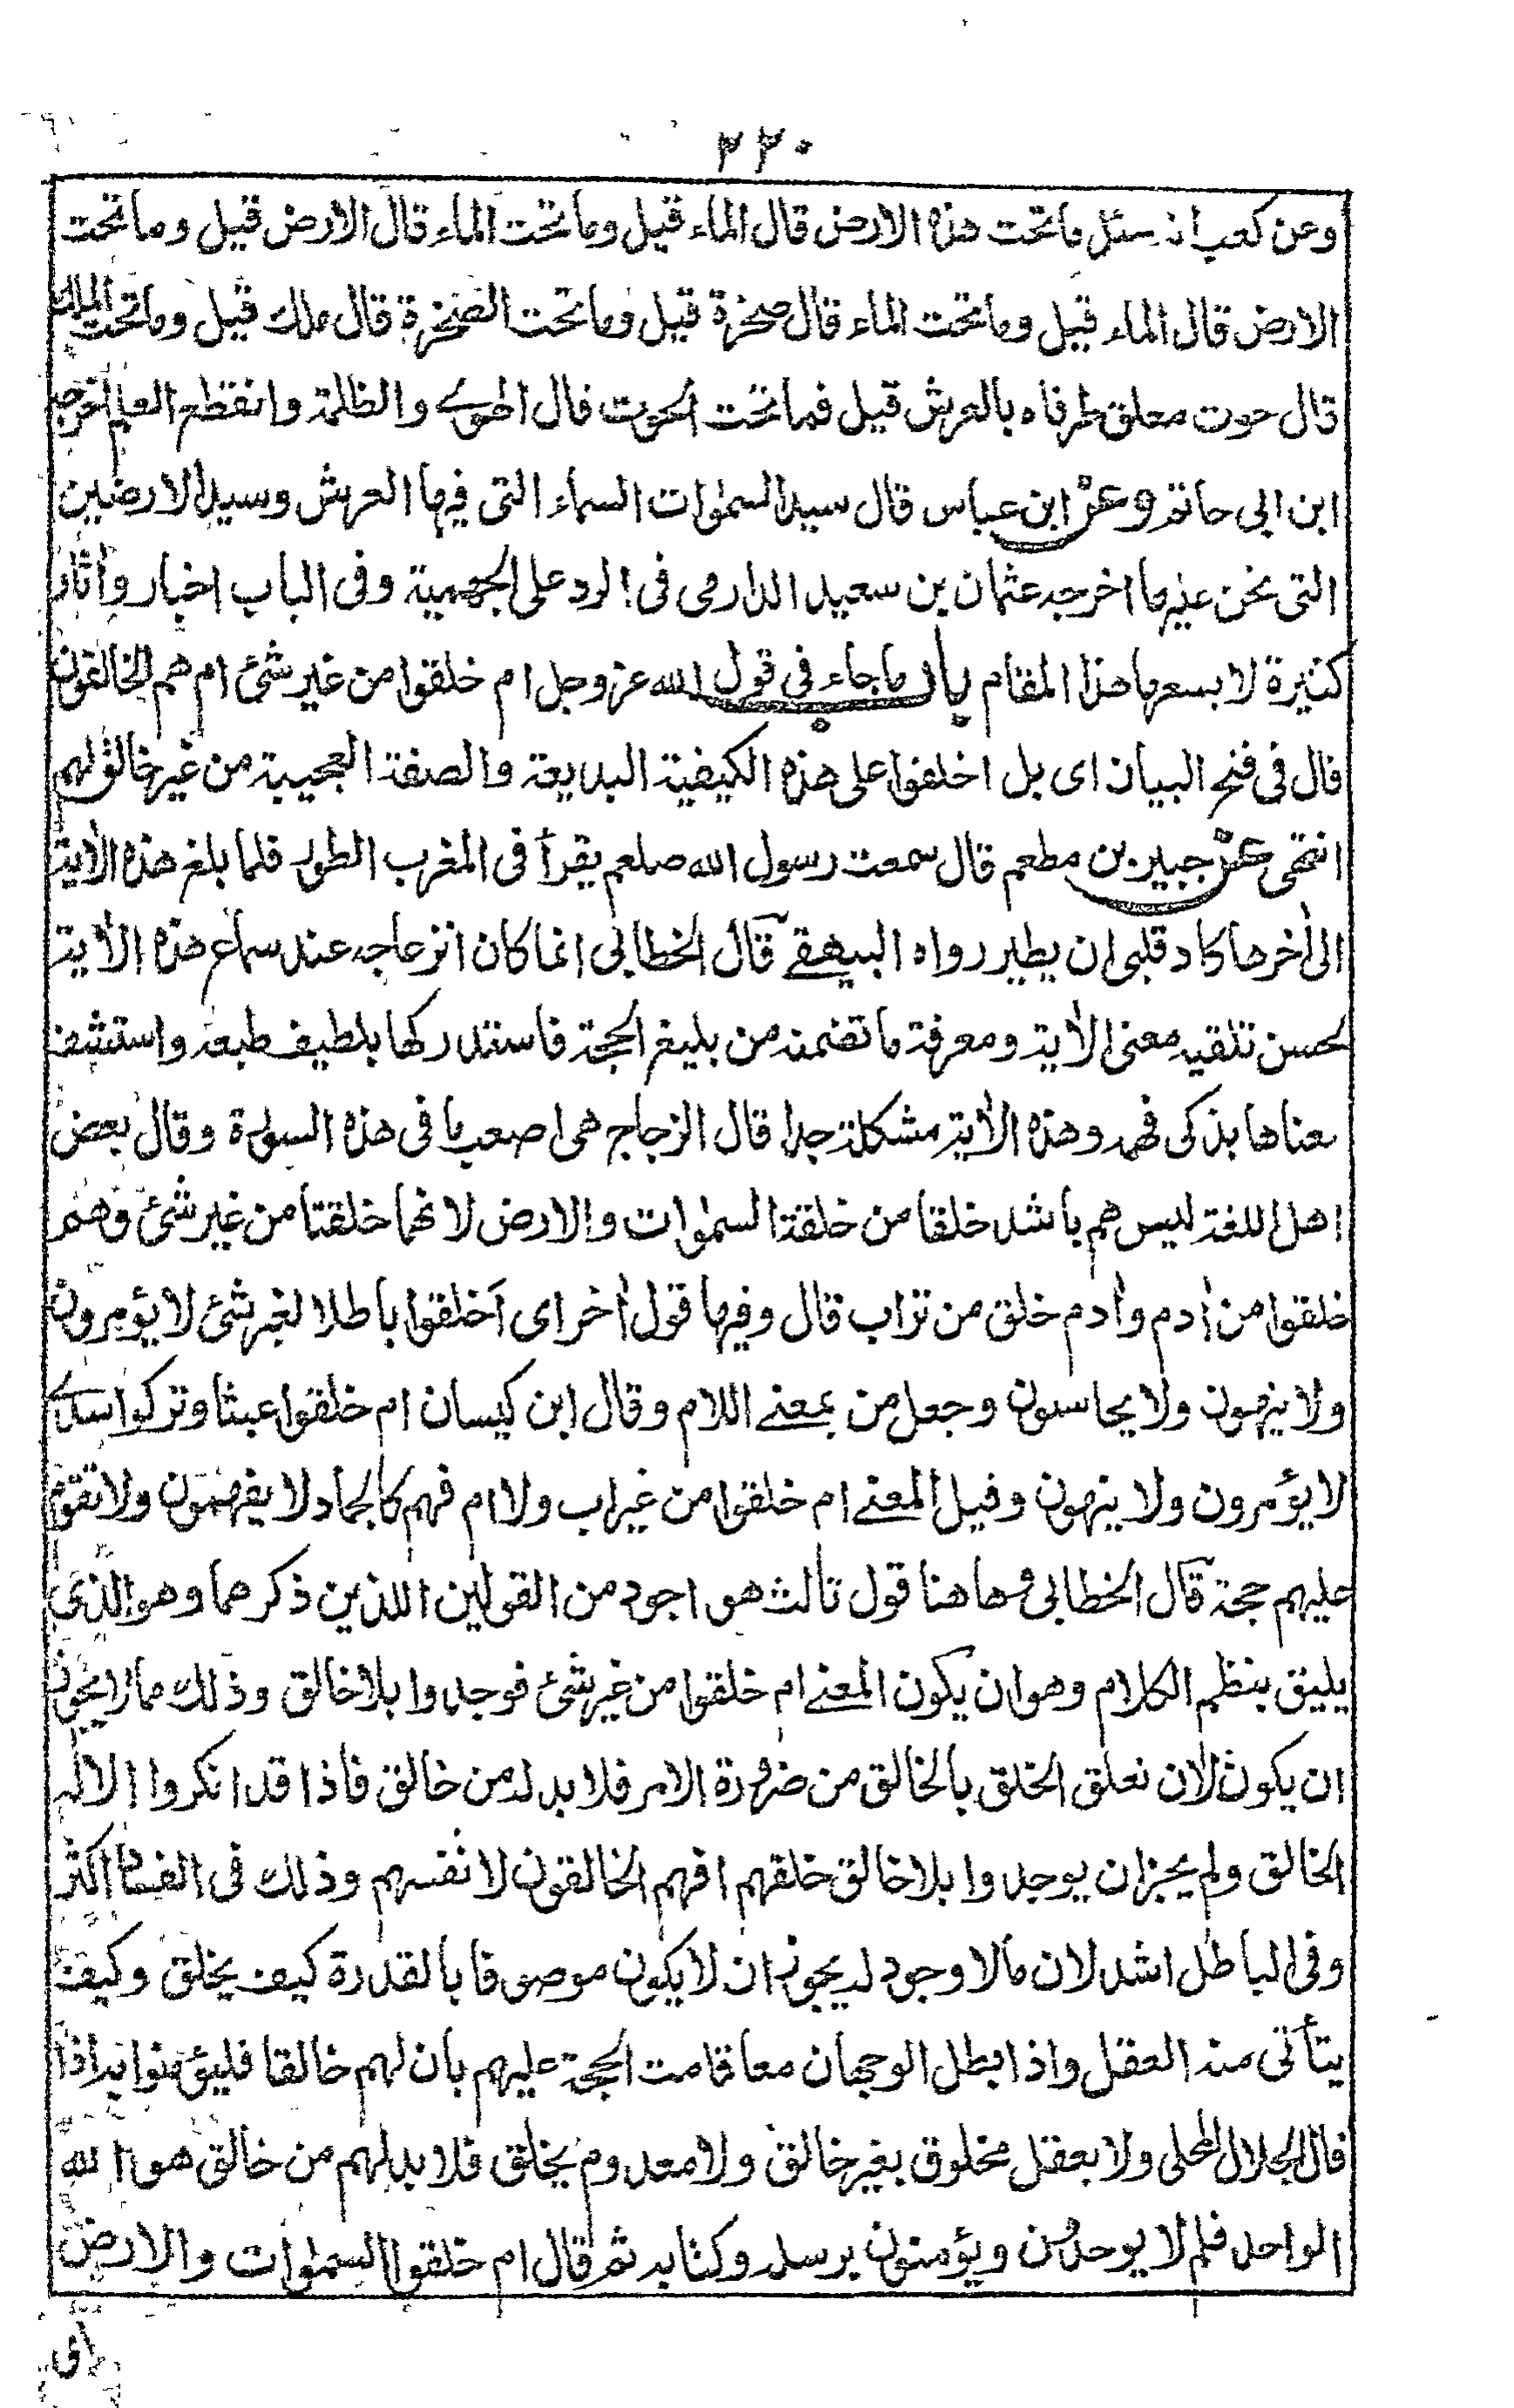 ٢٢٠
وعن كعب انه سئل ما تحت هذه الارض قال الماء قيل وما تحت الماء قال الارض قيل وما تحت
الارض قال الماء قيل وما تحت الماء قال صخرة قيل وما تحت الصخرة قال ملك قيل وما تحت الملك
قال حوت معلق طرفاه بالعرش قيل فما تحت الحوت قال الهوى والظلمة وانقطع العلم اخرجه
ابن ابى حاتم وعن ابن عباس قال سيد السمٰوات السماء التى فيها العرش وسيد الارضين
التى نحن عليها اخرجه عثمان بن سعيد الدارمى فى الرد على الجهمية وفى الباب اخبار واٰثار
كثيرة لا يسعها هذا المقام باب ما جاء فى قول الله عز وجل ام خلقوا من غير شئ ام هم الخالقون
قال فى فتح البيان اى بل اخلقوا على هذه الكيفية البديعة والصفة العجيبة من غير خالق لهم
انتهى عن جبير بن مطعم قال سمعت رسول الله صلعم يقرأ فى المغرب الطور فلما بلغ هذه الاٰية
الى اٰخرها كاد قلبى ان يطير رواه البيهقے قال الخطابى انما كان انزعاجه عند سماع هذه الاٰية
لحسن تلقيه معنى الاٰية ومعرفة ما تضمنه من بليغ الحجة فاستدركها بلطيف طبعه واستشف
معناها بذكى فهمه وهذه الاٰية مشكلة جدا قال الزجاج هى اصعب ما فى هذه السورة وقال بعض
اهل اللغة ليس هم باشد خلقا من خلقة السمٰوات والارض لانهما خلقتا من غير شئ وهم
خلقوا من اٰدم واٰدم خلق من تراب قال وفيها قول اٰخر اى اَخلقوا باطلا لغير شئ لا يؤمرون
ولا ينهون ولا يحاسبون وجعل من بمعنے اللام وقال ابن كيسان ام خلقوا عبثا وتركوا سدے
لا يؤمرون ولا ينهون وقيل المعنے ام خلقوا من غير اب ولا ام فهم كالجماد لا يفهمون ولا تقوم
عليهم حجة قال الخطابى وهاهنا قول ثالث هو اجود من القولين اللذين ذكرهما وهو الذى
يليق بنظم الكلام وهو ان يكون المعنے ام خلقوا من غير شئ فوجدوا بلا خالق وذلك مما لا يجوز
ان يكون لان تعلق الخلق بالخالق من ضرورة الامر فلا بد له من خالق فاذا قد انكروا الالٰه
الخالق ولم يجز ان يوجدوا بلا خالق خلقهم افهم الخالقون لانفسهم وذلك فى الفساد اكثر
وفى الباطل اشد لان ما لا وجود له يجوز ان لا يكون موصوفا بالقدرة كيف يخلق وكيف
يتأتى منه العقل واذا بطل الوجهان معا قامت الحجة عليهم بان لهم خالقا فليؤمنوا به اذا
قال الجلال المحلى ولا يعقل مخلوق بغير خالق ولا معدوم يخلق فلا بد لهم من خالق هو الله
الواحد فلم لا يوحدون ويؤمنون برسله وكتابه ثم قال ام خلقوا السمٰوات والارض
اى